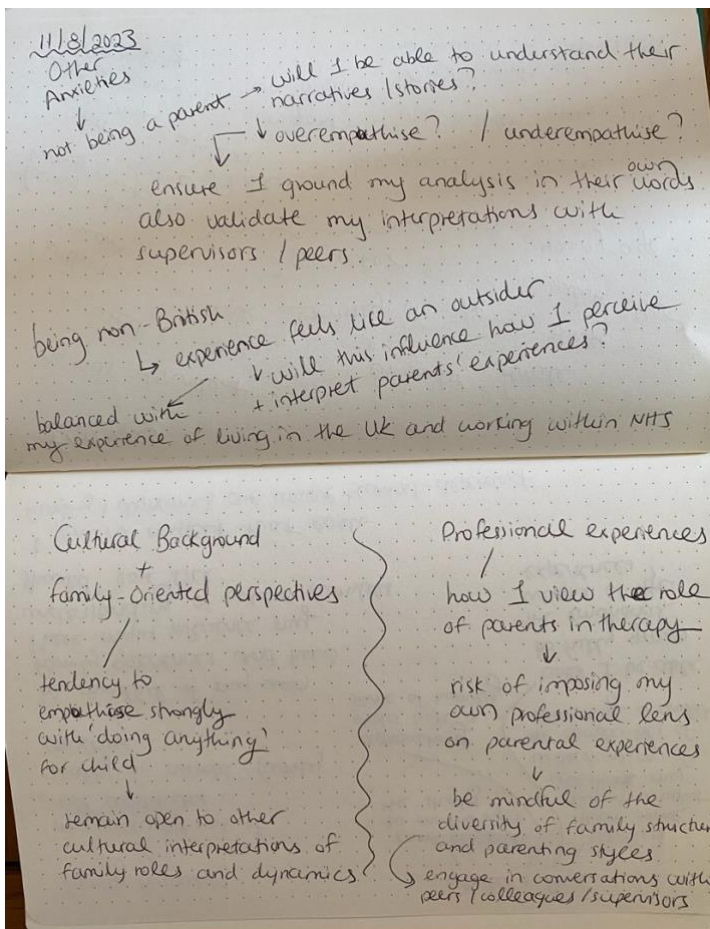 11/8/2023
Other
Anxieties
↓
not being a parent → will I be able to understand their
narratives / stories?
↓ overempathise? / underempathise?
ensure I ground my analysis in their own words
also validate my interpretations with
supervisors / peers.
being non-British
↳ experience feels like an outsider
↓ will this influence how I perceive
+ interpret parents' experiences?
balanced with
my experience of living in the UK and working within NHS
Cultural Background
+
family-oriented perspectives
tendency to
empathise strongly
with 'doing anything'
for child
↓
remain open to other
cultural interpretations of
family roles and dynamics
Professional experiences
how I view the role
of parents in therapy
↓
risk of imposing my
own professional lens
on parental experiences
↓
be mindful of the
diversity of family structur
and parenting styles
engage in conversations with
peers / colleagues / supervisors